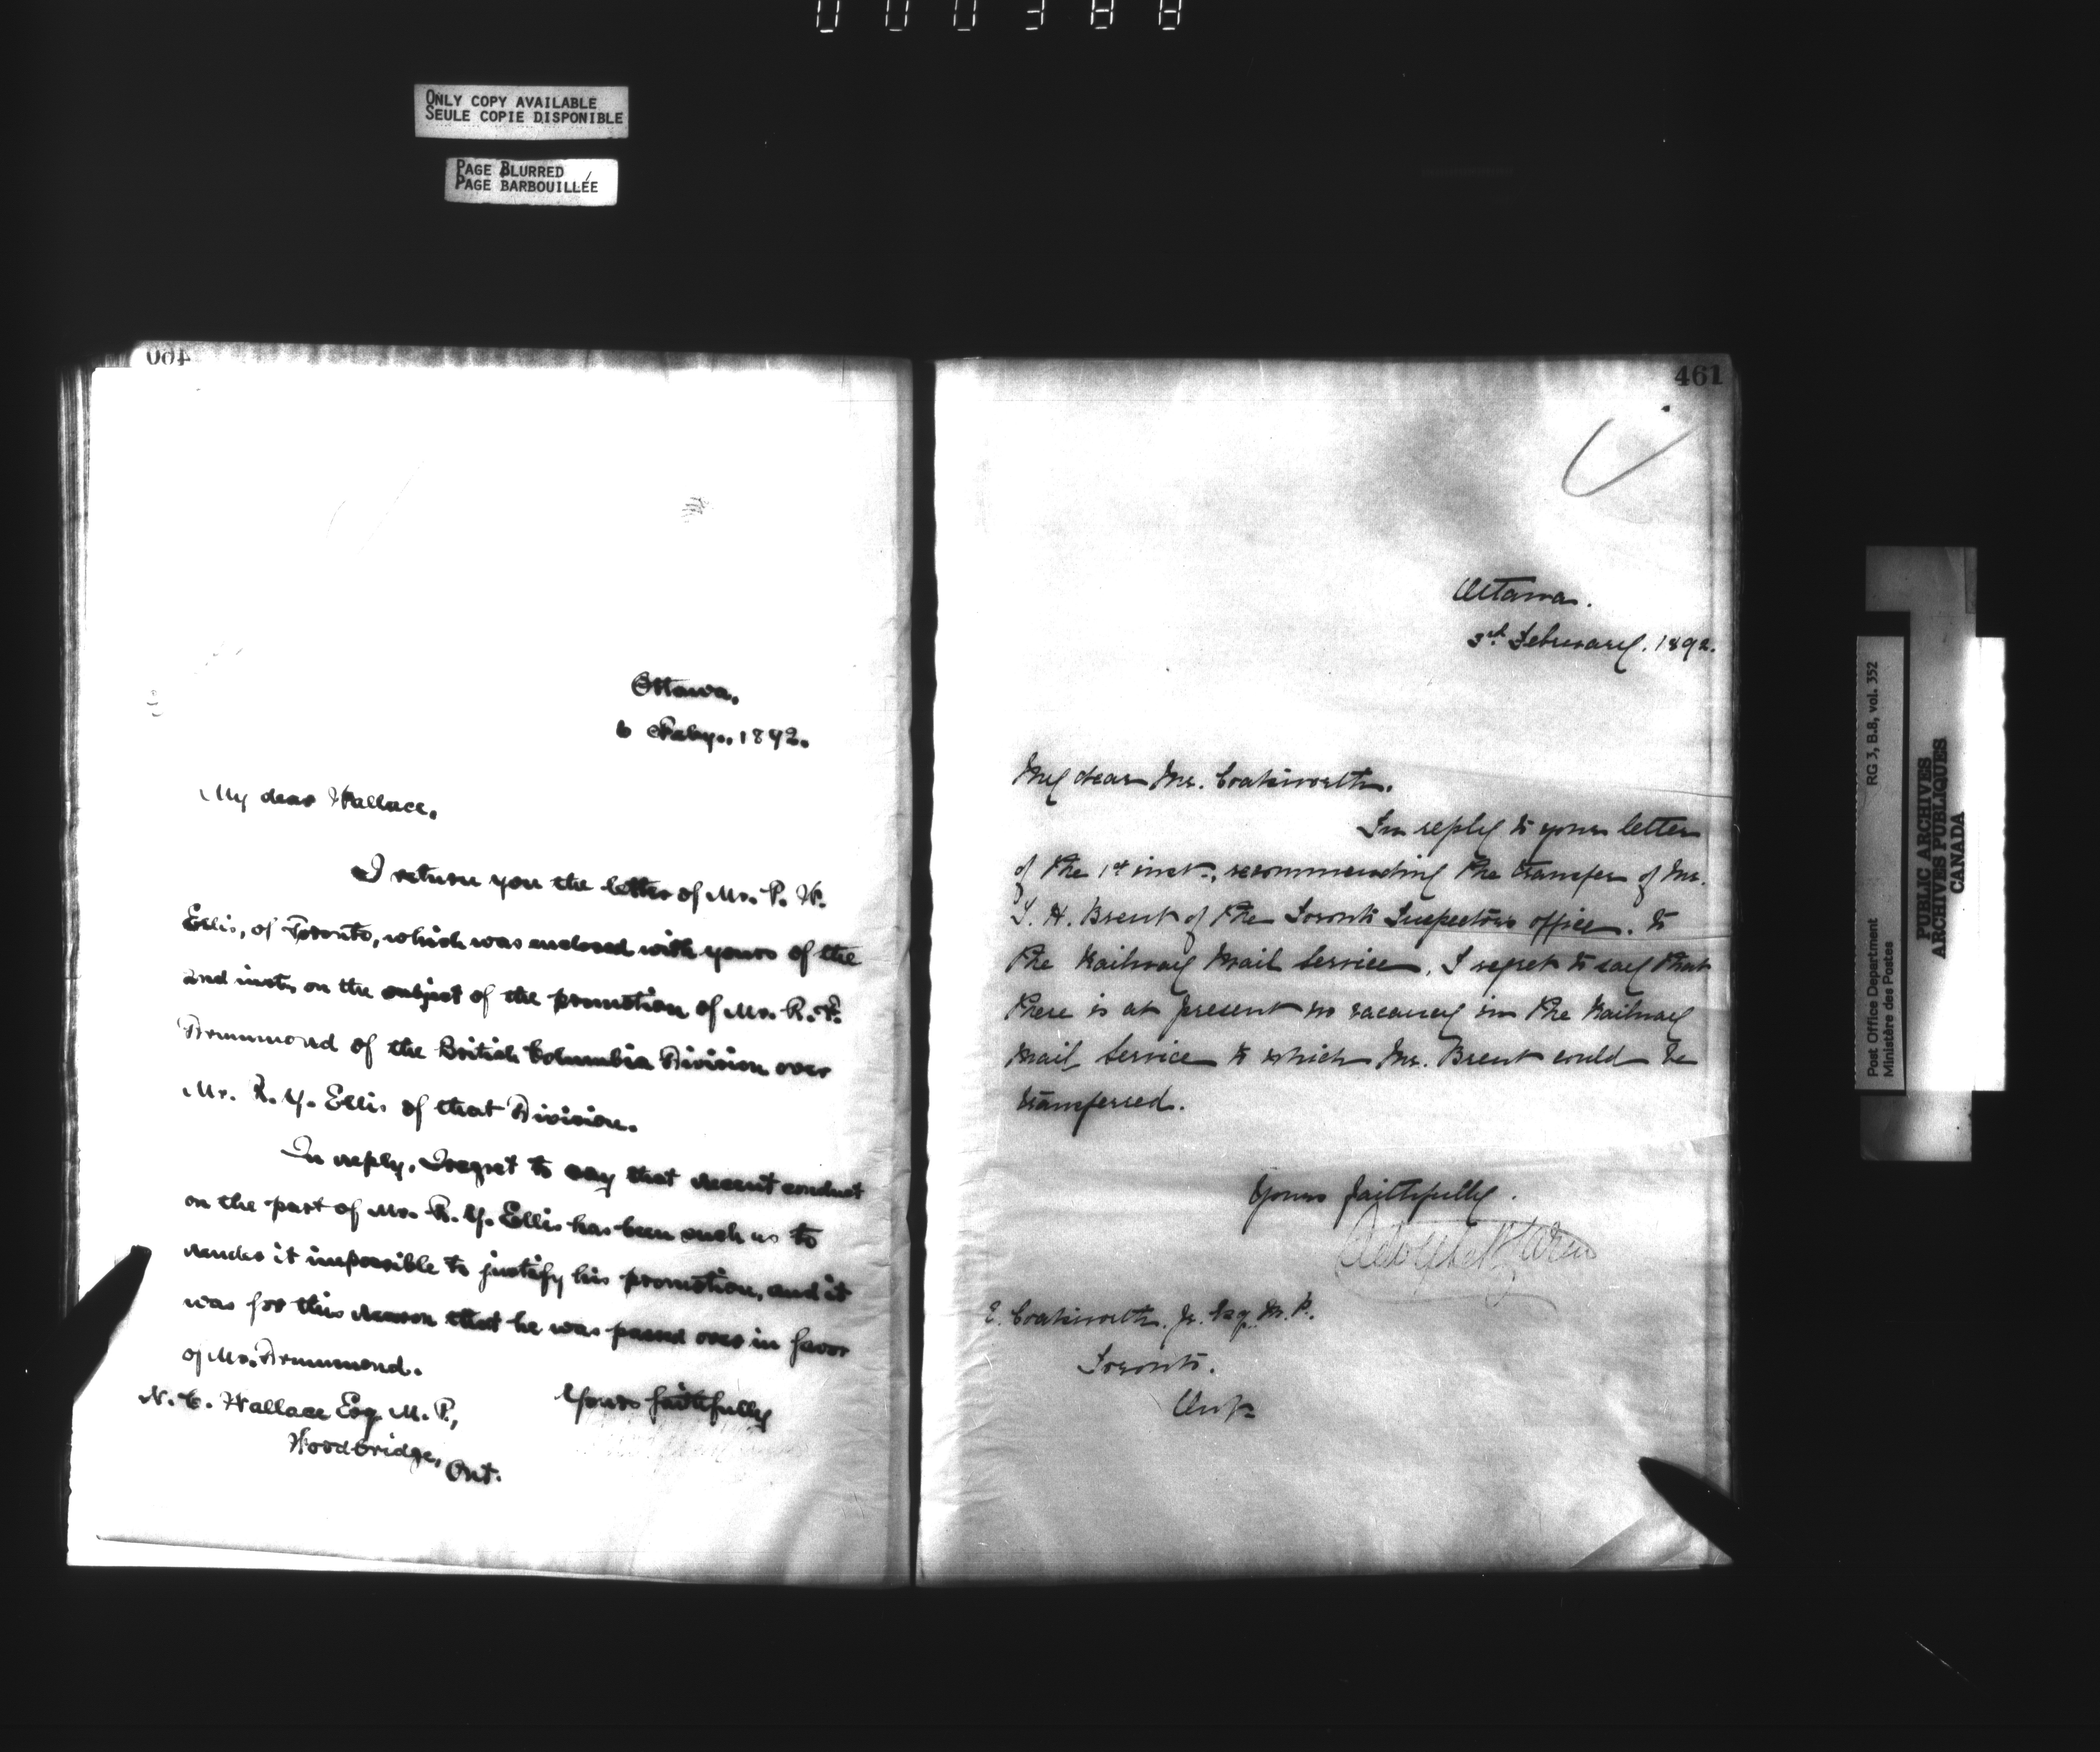 000388
ONLY COPY AVAILABLE
SEULE COPIE DISPONIBLE
PAGE BLURRED
PAGE BARBOUILLÉE
460
Ottawa,
6 Feby., 1892.
My dear Wallace,
I return you the letter of Mr. P. W.
Ellis, of Toronto, which was enclosed with yours of the
2nd inst., on the subject of the promotion of Mr. R. P.
Drummond of the British Columbia Division over
Mr. R. Y. Ellis of that Division.
In reply, I regret to say that recent conduct
on the part of Mr. R. Y. Ellis has been such as to
render it impossible to justify his promotion, and it
was for this reason that he was passed over in favor
of Mr. Drummond.
Yours faithfully
N. C. Wallace Esq M. P.,
Woodbridge,
Ont.
461
Ottawa.
3rd February. 1892.
My dear Mr. Coatsworth.
In reply to your letter
of the 1st inst., recommending the transfer of Mr.
T. H. Brent of the Toronto Inspectors office. to
the Railway Mail Service, I regret to say that
there is at present no vacancy in the Railway
Mail Service to which Mr. Brent could be
transferred.
Yours faithfully.
Adolphe P Caron
E. Coatsworth. Jr. Esq. M. P.
Toronto.
Ont.
Post Office Department RG 3, B.8, vol. 352
Ministère des Postes
PUBLIC ARCHIVES
ARCHIVES PUBLIQUES
CANADA